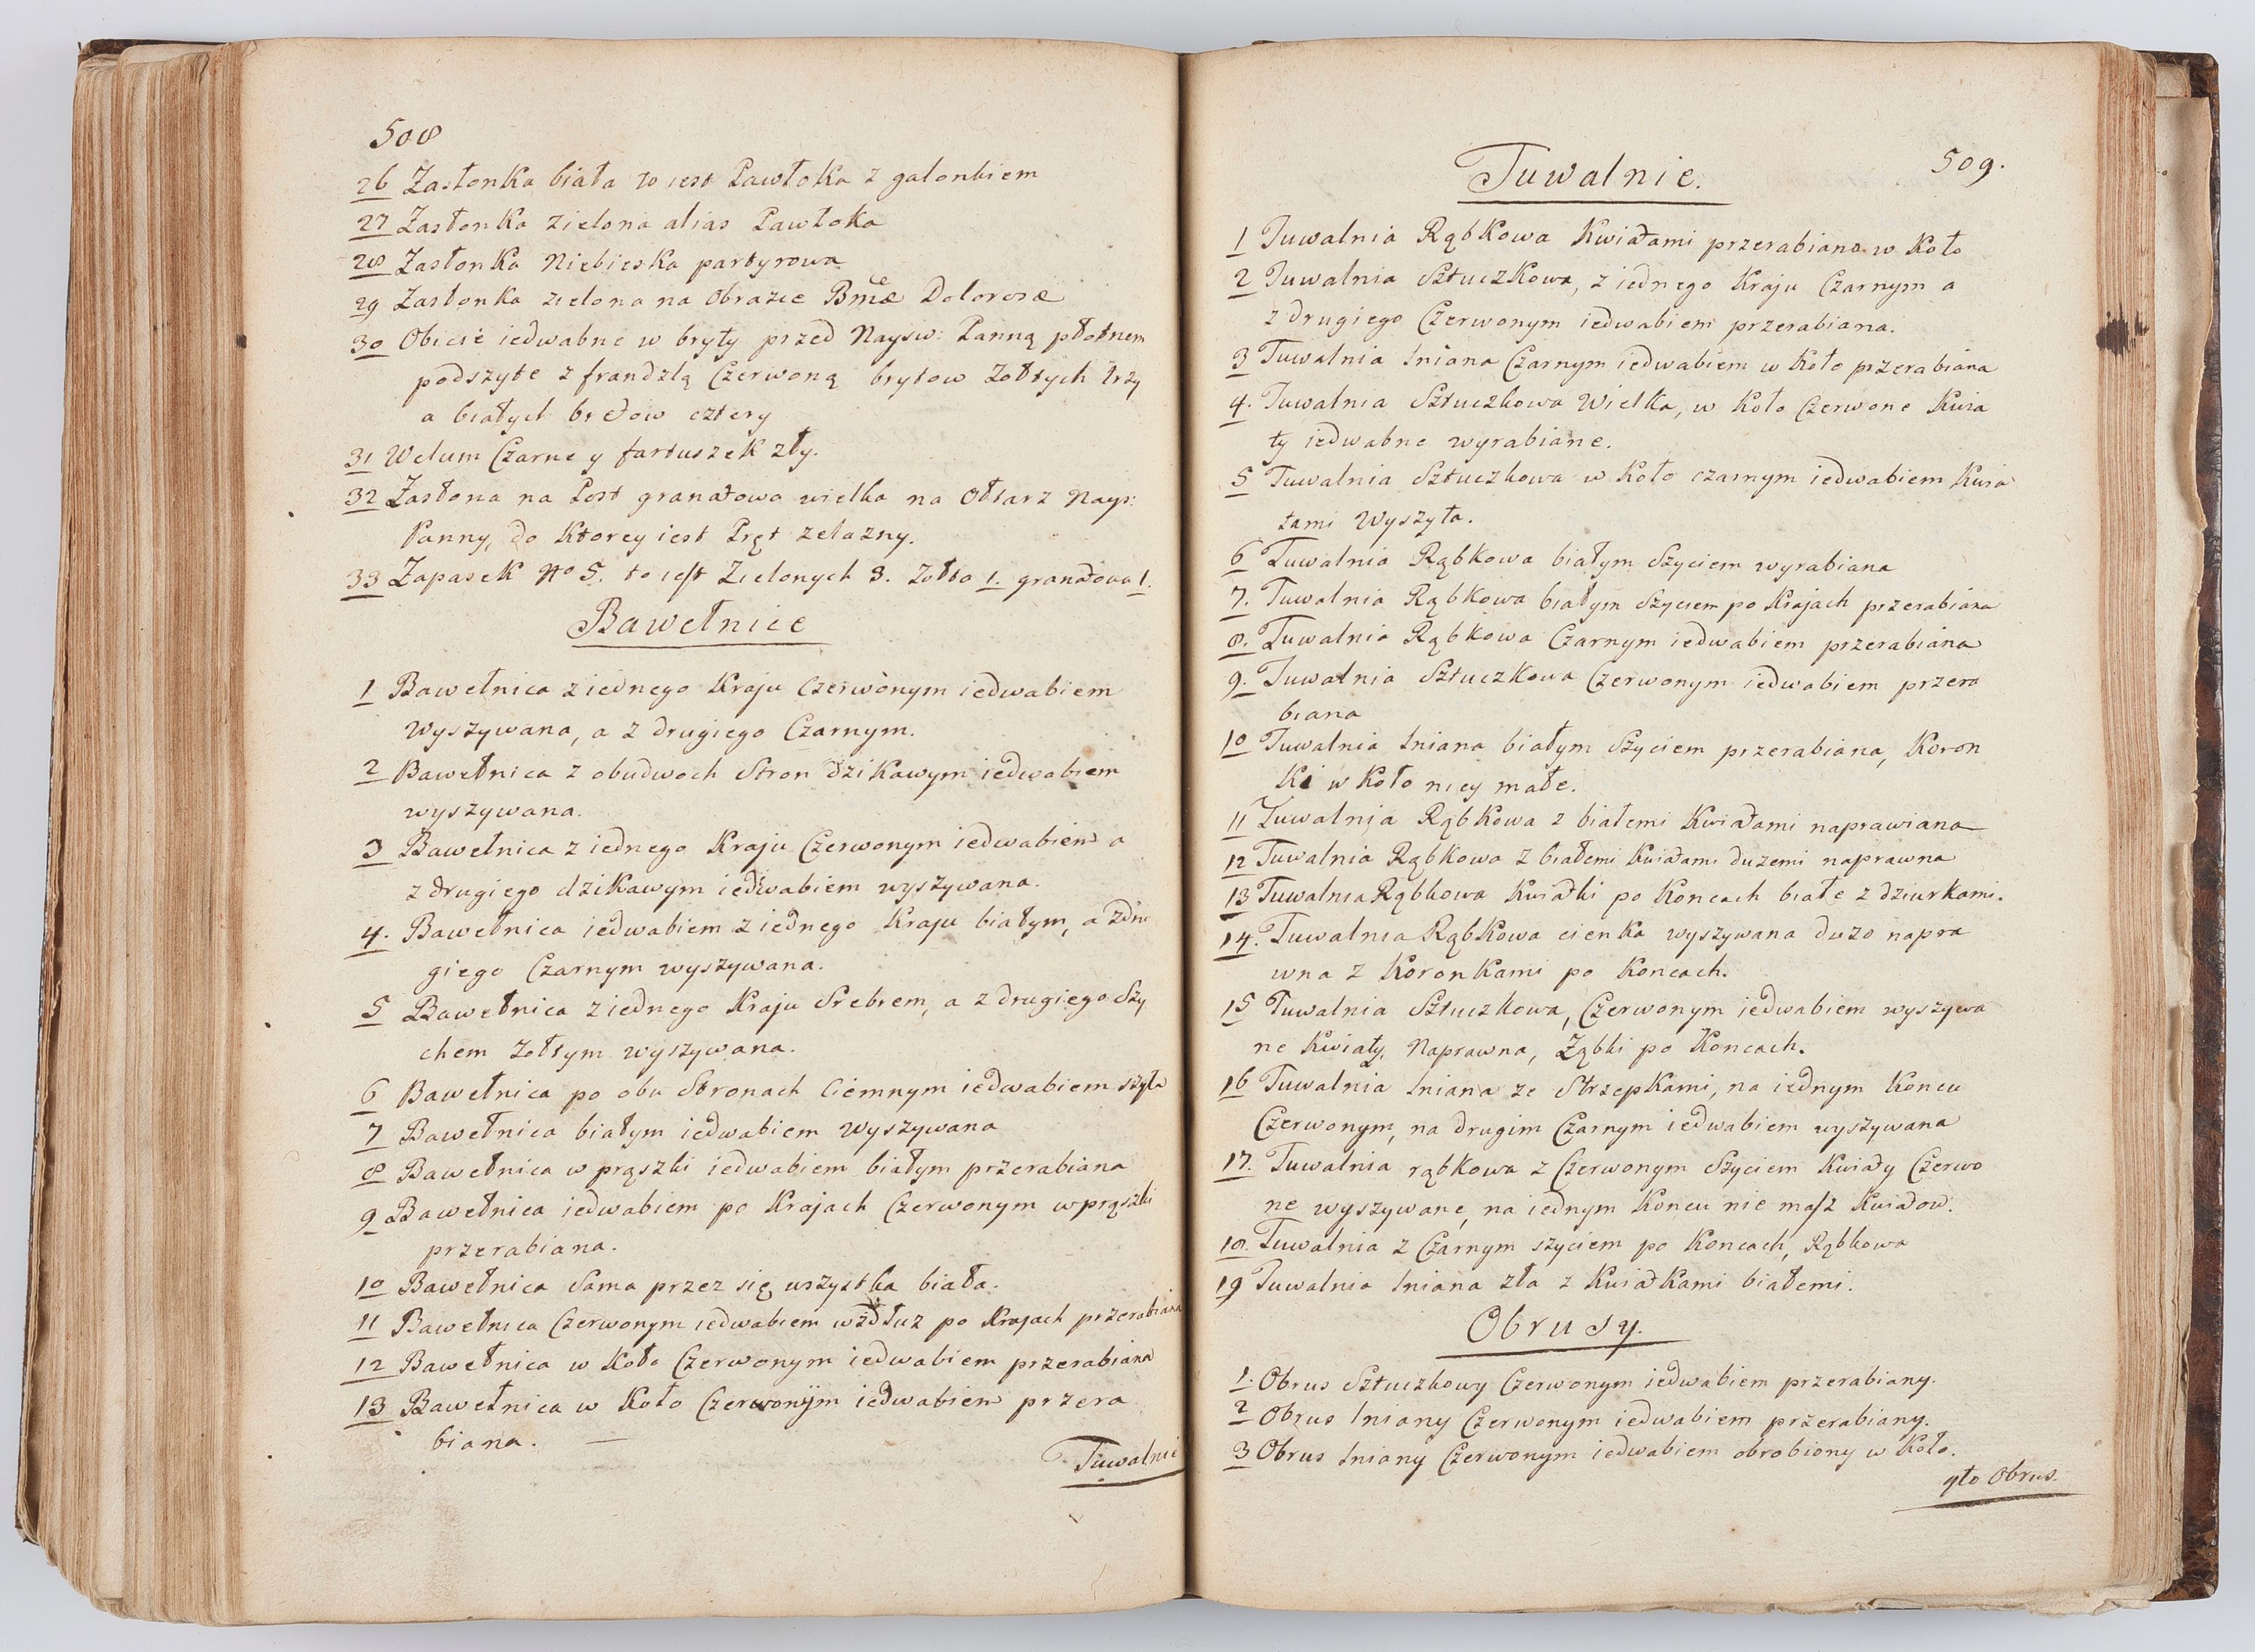 508
26 Zasłonka biała to iest Pawłoka z galonkiem
27 Zasłonka zielona alias Pawłoka
28 Zasłonka Niebieska partyrowa
29 Zasłonka zielona na Obrazie Bmæ Dolorosæ
30 Obicie iedwabne w bryty przed Nayśw: Panną płotnem
podszyte z frandzlą Czerwoną brytow Zołtych trzy
a białych bretow cztery
31 Welum Czarne y fartuszek zły.
32 Zasłona na Post granatowa wielka na Ołtarz Nays:
Panny, do Ktorey iest Pręt zelazny.
33 Zapasek No 5. to iest Zielonych 3. Zołta 1. granatowa 1.
Bawełnice
1 Bawełnica z iednego Kraju Czerwonym iedwabiem
Wyszywana, a z drugiego Czarnym.
2 Bawełnica z obudwoch Stron dzikawym iedwabiem
wyszywana.
3 Bawełnica z iednego Kraju Czerwonym iedwabiem a
z drugiego dzikawym iedwabiem wyszywana.
4. Bawełnica iedwabiem z iednego Kraju białym, a zdru
giego Czarnym wyszywana.
5 Bawełnica z iednego Kraju Srebrem, a z drugiego Szy
chem Zołtym wyszywana.
6 Bawełnica po obu Stronach Ciemnym iedwabiem szyta
7 Bawełnica białym iedwabiem Wyszywana
8 Bawełnica w prąszki iedwabiem białym przerabiana
9 Bawełnica iedwabiem po Krajach Czerwonym w prąszki
przerabiana.
10 Bawełnica Sama przez się wszystka biała.
11 Bawełnica Czerwonym iedwabiem wzdłuz po Krajach przerabiana
12 Bawełnica w Koło Czerwonym iedwabiem przerabiana
13 Bawełnica w Koło Czerwonÿm iedwabiem przera
biana.
Tuwalnie
509.
Tuwalnie.
1 Tuwalnia Rąbkowa Kwiatami przerabiana w Koło
2 Tuwalnia Sztuczkowa, z iednego Kraju Czarnym a
z drugiego Czerwonym iedwabiem przerabiana.
3 Tuwalnia lniana Czarnym iedwabiem w Koło przerabiana
4. Tuwalnia Sztuczkowa Wielka, w Koło Czerwone Kwia
ty iedwabne wyrabiane.
5 Tuwalnia Sztuczkowa w Koło czarnym iedwabiem Kwia
tami Wyszyta.
6 Tuwalnia Rąbkowa białym Szyciem wyrabiana
7. Tuwalnia Rąbkowa białym Szyciem po Krajach przerabiana
8. Tuwalnia Rąbkowa Czarnym iedwabiem przerabiana
9. Tuwalnia Sztuczkowa Czerwonym iedwabiem przera
biana
10 Tuwalnia lniana białym Szyciem przerabiana, Koron
Ki w Koło niey małe.
11 Tuwalnia Rąbkowa z białemi Kwiatami naprawiana
12 Tuwalnia Rąbkowa z białemi Kwiatami duzemi naprawna
13 Tuwalnia Rąbkowa Kwiatki po Koncach białe z dziurkami.
14. Tuwalnia Rąbkowa cienka wyszywana duzo napra
wna z Koronkami po Koncach.
15 Tuwalnia Sztuczkowa, Czerwonym iedwabiem wyszywa
ne Kwiaty, Naprawna, Ząbki po Koncach.
16 Tuwalnia lniana ze Strzepkami, na iednym Koncu
Czerwonym, na drugim Czarnym iedwabiem wyszywana
17. Tuwalnia rąbkowa z Czerwonym Szyciem Kwiaty Czerwo
ne wyszywane, na iednym Koncu nie masz Kwiatow.
18. Tuwalnia z Czarnym szyciem po Koncach, Rąbkowa
19 Tuwalnia lniana zła z Kwiatkami białemi.
Obrusy.
1. Obrus Sztuczkowy Czerwonym iedwabiem przerabiany.
2 Obrus lniany Czerwonym iedwabiem przerabiany.
3 Obrus lniany Czerwonym iedwabiem obrobiony w Koło.
4to Obrus.